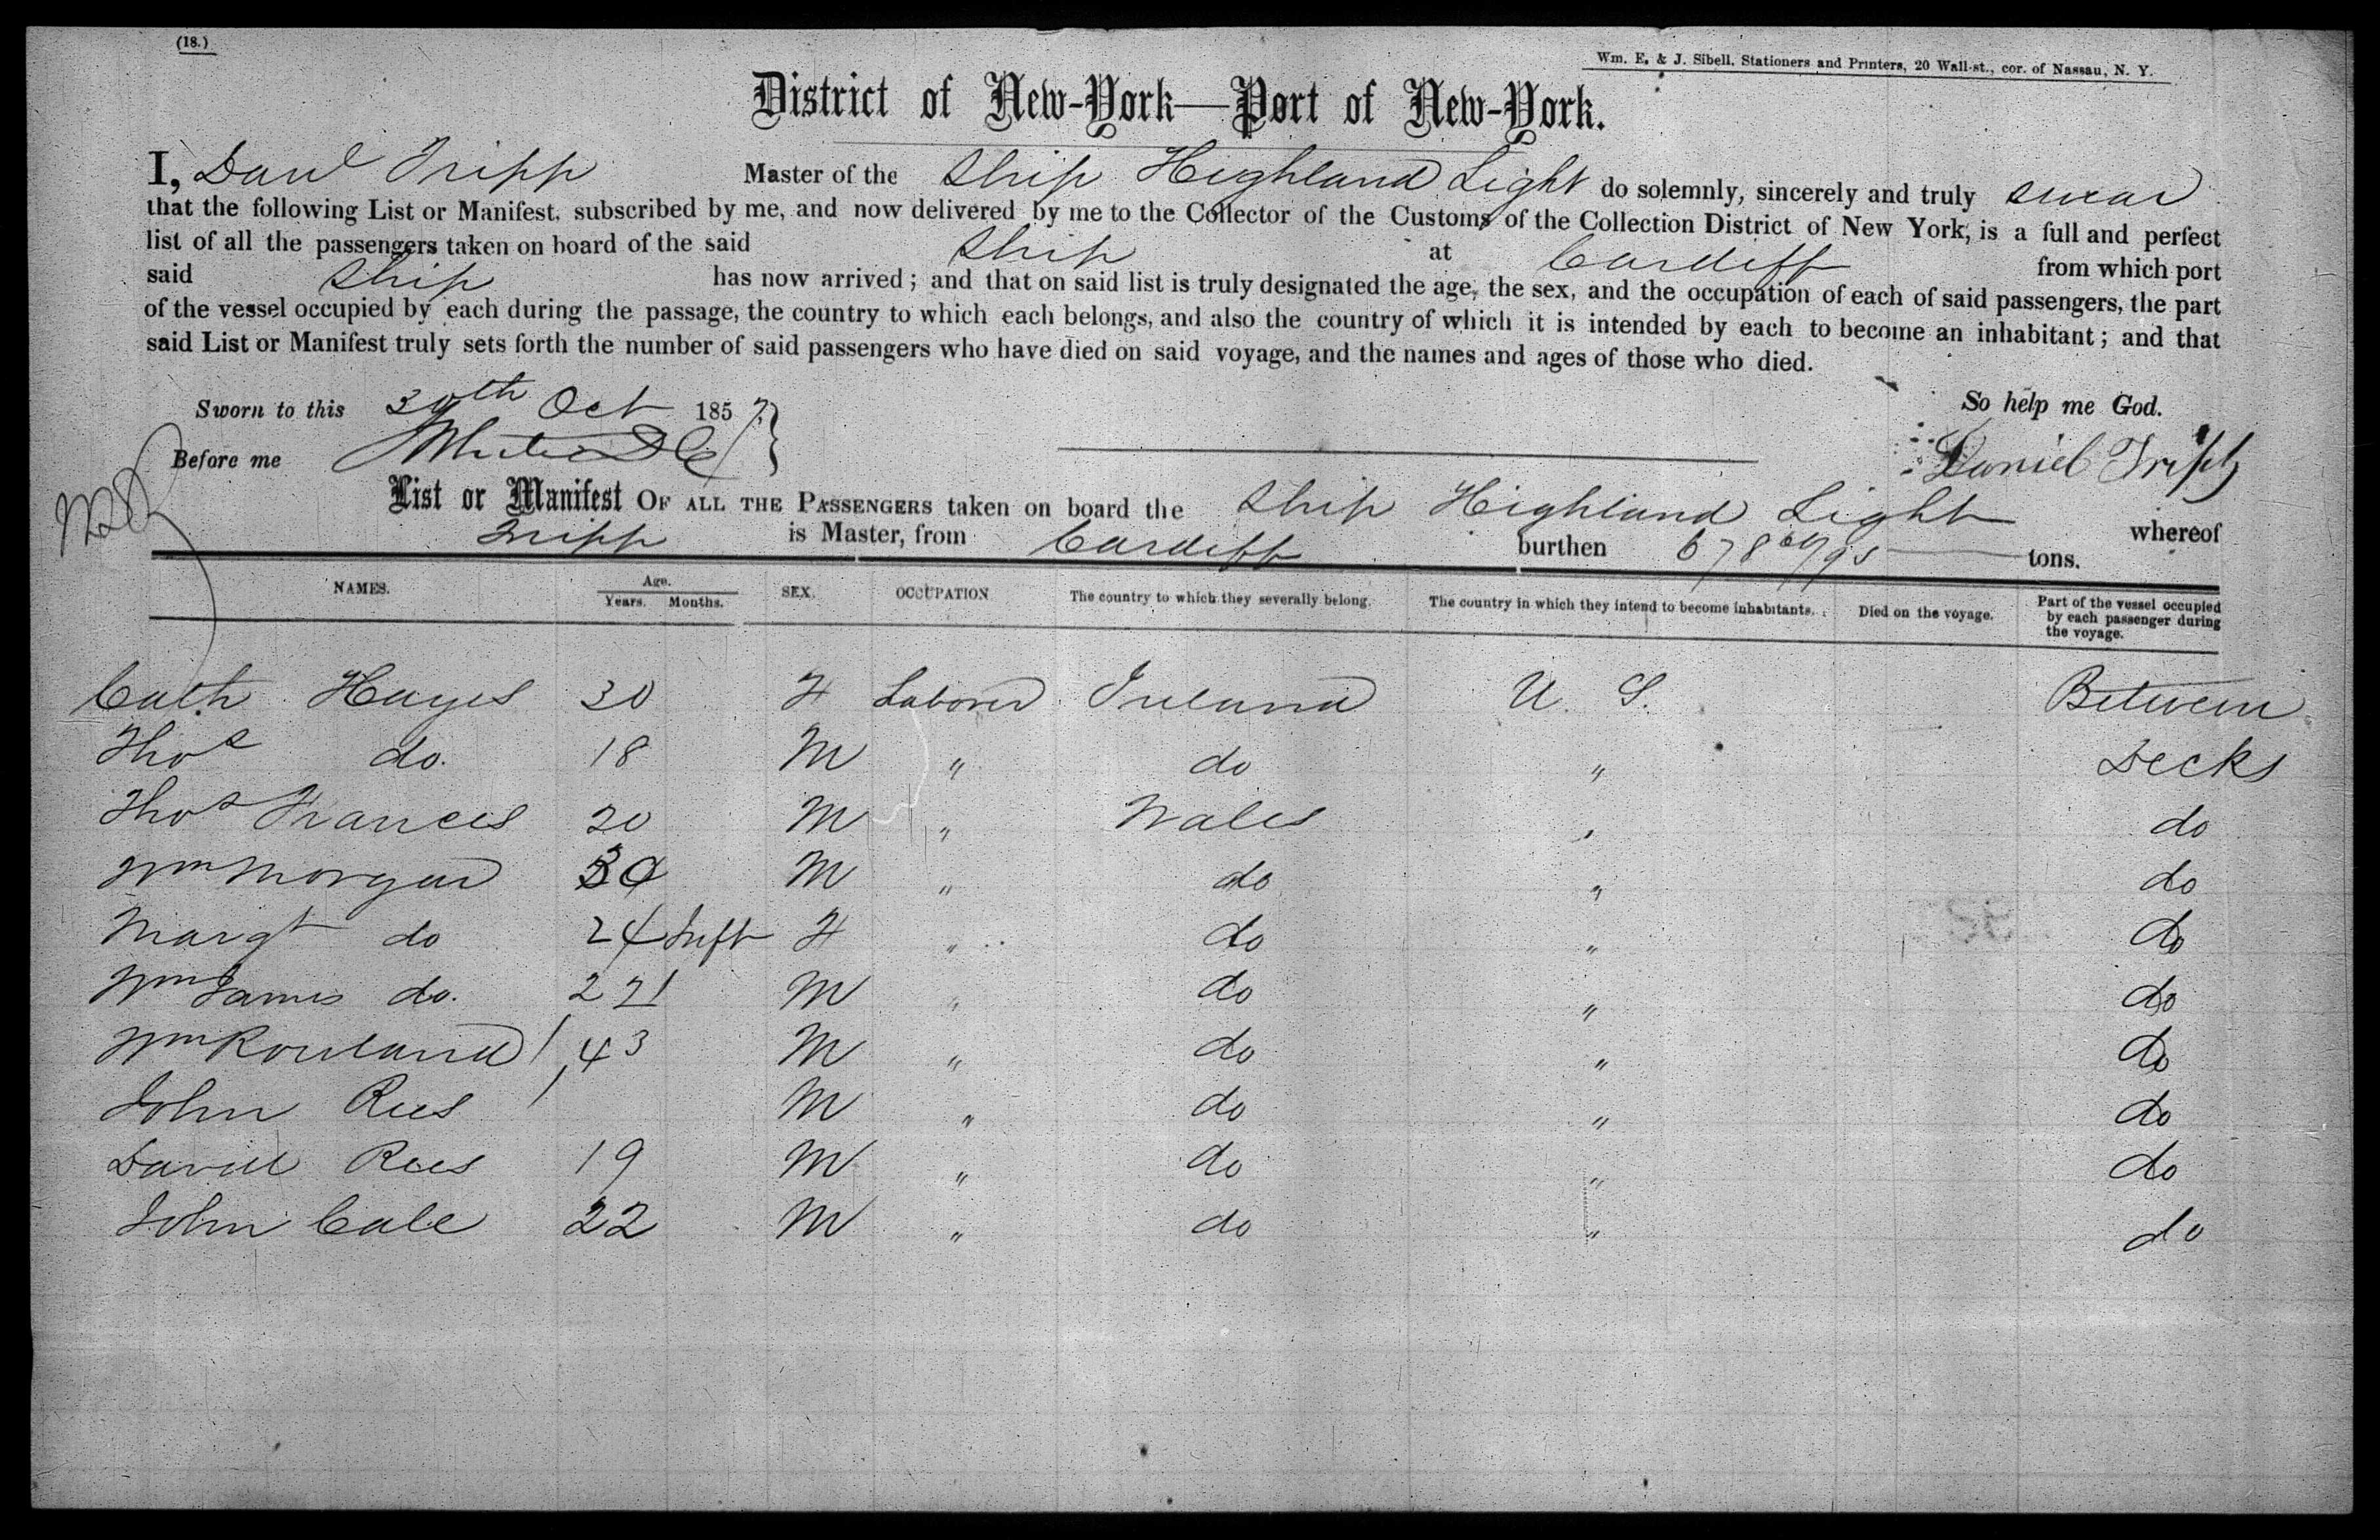 (18.)
Wm. E. & J. Sibell, Stationers and Printers, 20 Wall-st., cor. of Nassau, N. Y.
District of New-York—Port of New-York.
I, Danl Tripp Master of the Ship Highland Light do solemnly, sincerely and truly swear
that the following List or Manifest, subscribed by me, and now delivered by me to the Collector of the Customs of the Collection District of New York, is a full and perfect
list of all the passengers taken on board of the said Ship at Cardiff from which port
said Ship has now arrived; and that on said list is truly designated the age, the sex, and the occupation of each of said passengers, the part
of the vessel occupied by each during the passage, the country to which each belongs, and also the country of which it is intended by each to become an inhabitant; and that
said List or Manifest truly sets forth the number of said passengers who have died on said voyage, and the names and ages of those who died.
Sworn to this 30th Oct 1857. So help me God.
Before me Daniel Tripp
List or Manifest OF ALL THE PASSENGERS taken on board the Ship Highland Light whereof
Tripp is Master, from Cardiff burthen 678 /95 tons.
NAMES. Age. Years. Months. SEX. OCCUPATION The country to which they severally belong. The country in which they intend to become inhabitants. Died on the voyage. Part of the vessel occupied by each passenger during the voyage.
Cath Hayes 30 F Laborer Ireland U. S. Between
Thos do. 18 M " do " Decks
Thos Frances 20 M " Wales " do
Wm Morgan 30 M " do " do
Margt do 24 Inft F " do " do
Wm James do. M " do " do
Wm Rowland 43 M " do " do
John Rees M " do " do
David Rees 19 M " do " do
John Cale 22 M " do " do